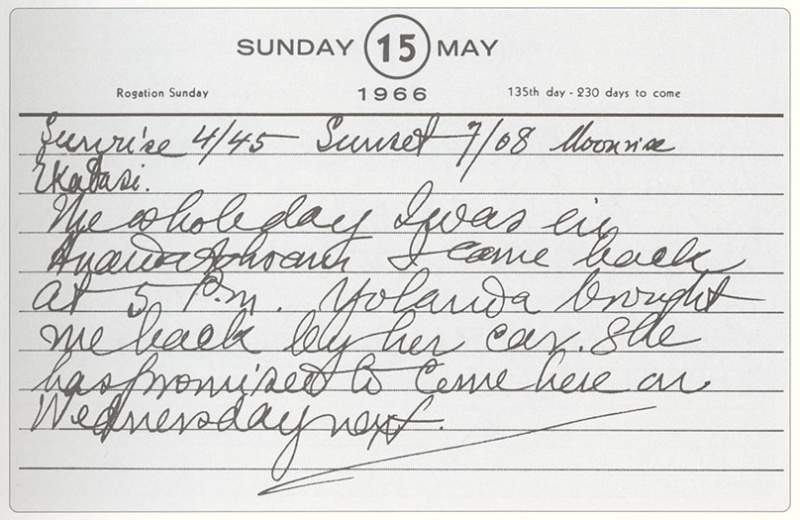 SUNDAY 15 MAY
Rogation Sunday 1966 135th day - 230 days to come
Sunrise 4/45 Sunset 7/08 Moonrise
Ekadasi.
The whole day I was in
Anandashram I came back
at 5 P.m. Yolanda brought
me back by her car. She
has promised to come here on
Wednersday next.